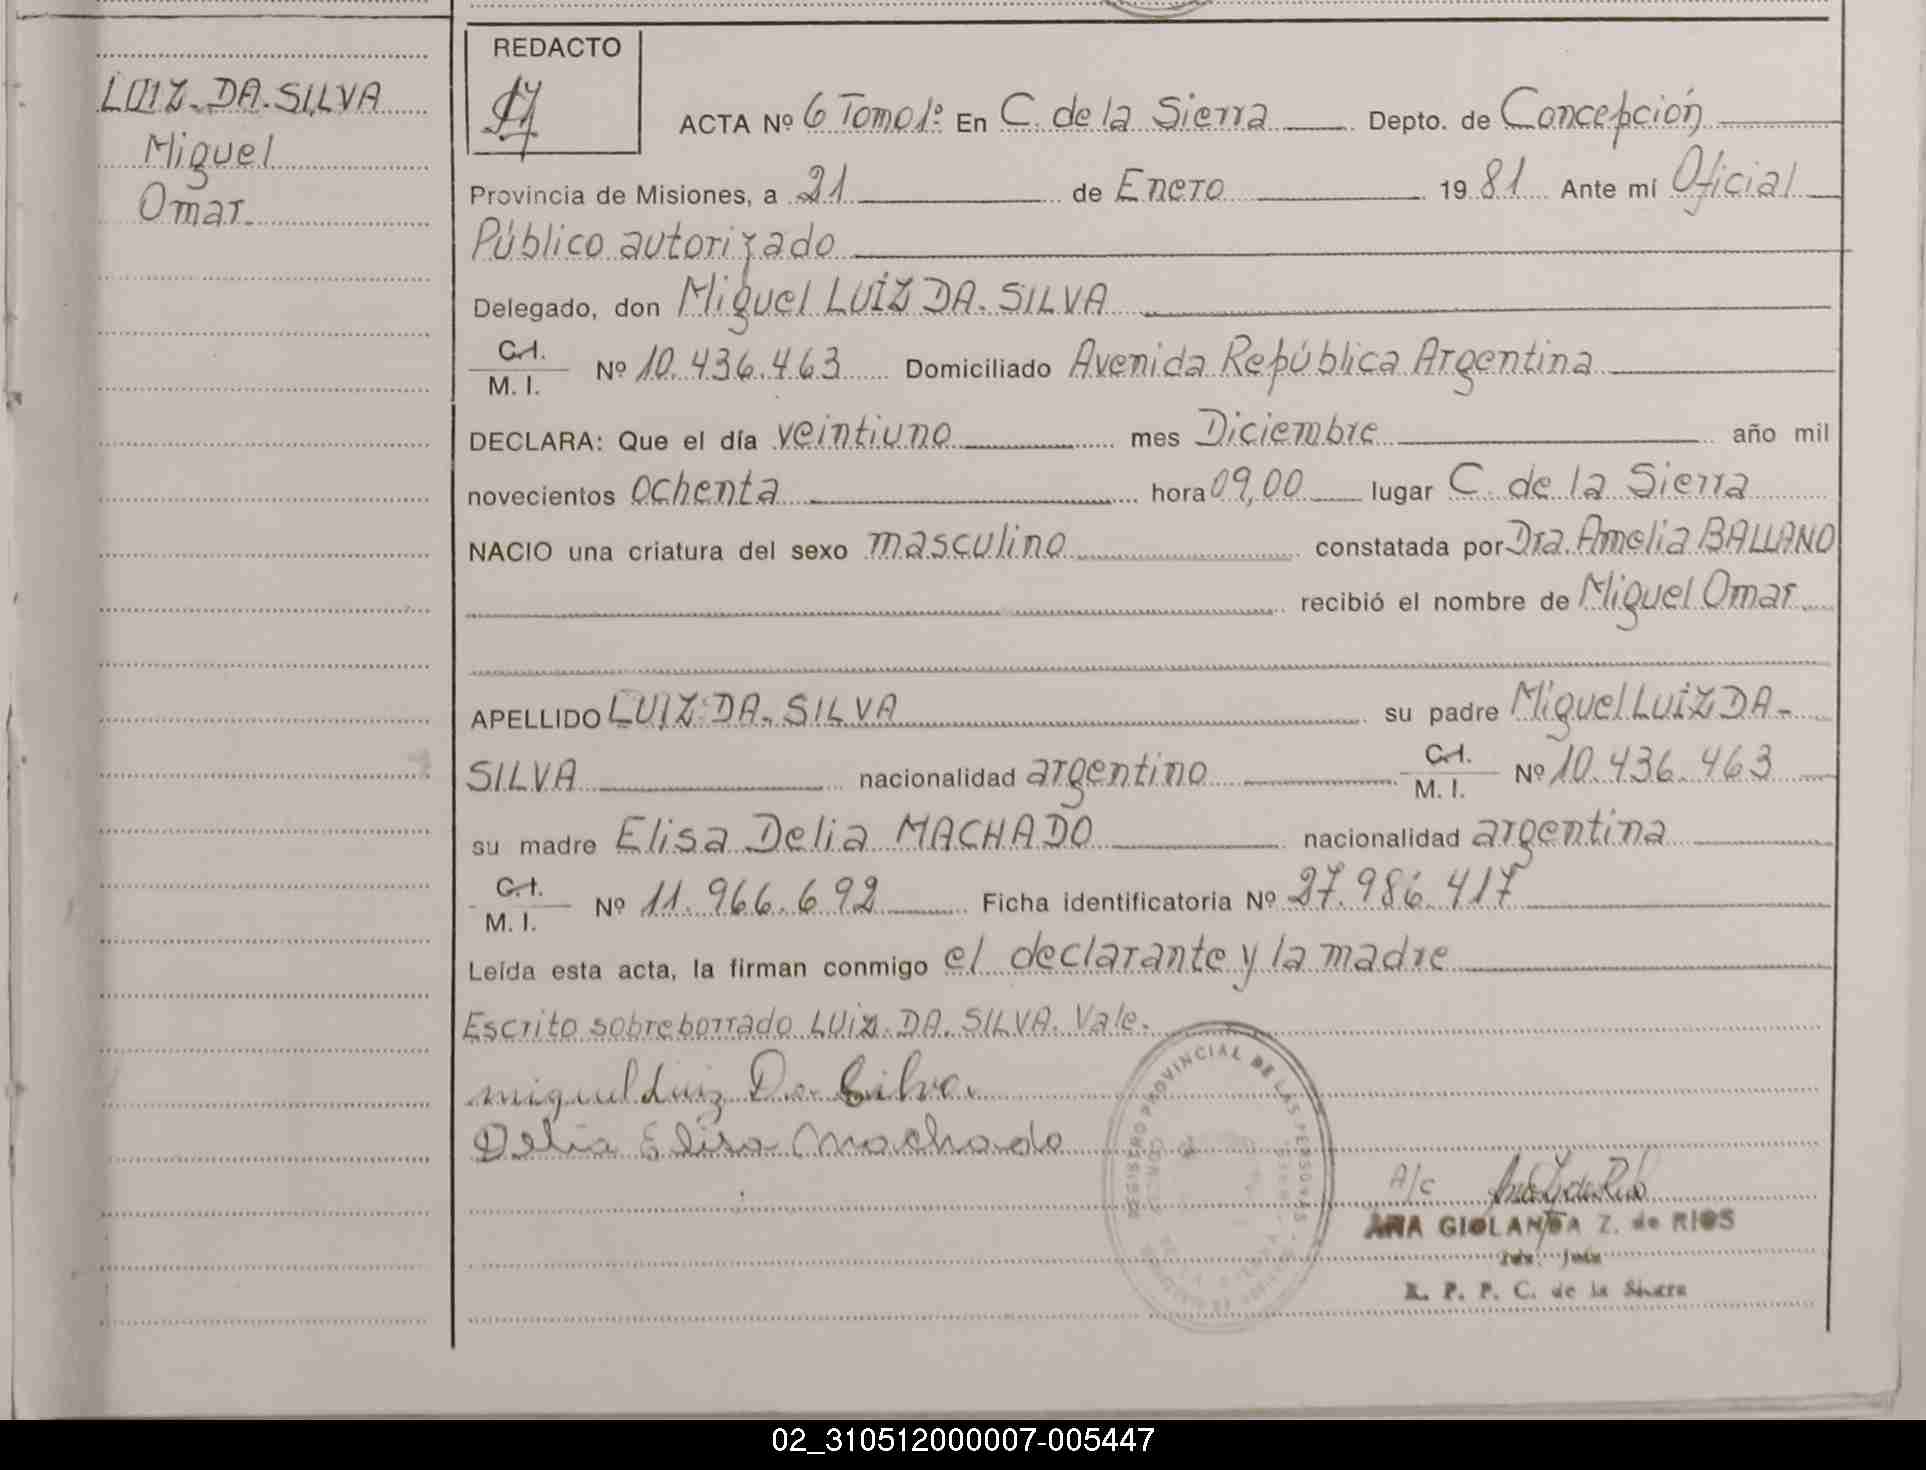 LUIZ DA.SILVA
Miguel
Omar.
REDACTO
ACTA Nº 6 Tomo 1º En C. de la Sierra Depto. de Concepción
Provincia de Misiones, a 21 de Enero 1981 Ante mí Oficial
Público autorizado
Delegado, don Miguel LUIZ DA. SILVA
C.I.
M. I. Nº 10.436.463 Domiciliado Avenida República Argentina
DECLARA: Que el día veintiuno mes Diciembre año mil
novecientos ochenta hora 09,00 lugar C. de la Sierra
NACIO una criatura del sexo masculino constatada por Dra. Amelia BALLANO
recibió el nombre de Miguel Omar
APELLIDO LUIZ DA. SILVA su padre Miguel LUIZ DA-
SILVA nacionalidad argentino C.I.
M. I. Nº 10.436.463
su madre Elisa Delia MACHADO nacionalidad argentina
C.I.
M. I. Nº 11.966.692 Ficha identificatoria Nº 27.986.417
Leída esta acta, la firman conmigo el declarante y la madre
Escrito sobreborrado LUIZ. DA. SILVA. Vale.
miguel Luiz Da Silva
Delia Elisa Machado
REGISTRO PROVINCIAL DE LAS PERSONAS
A/c
ANA GIOLANDA Z. de RIOS
R. P. P. C. de la Sierra
02_310512000007-005447